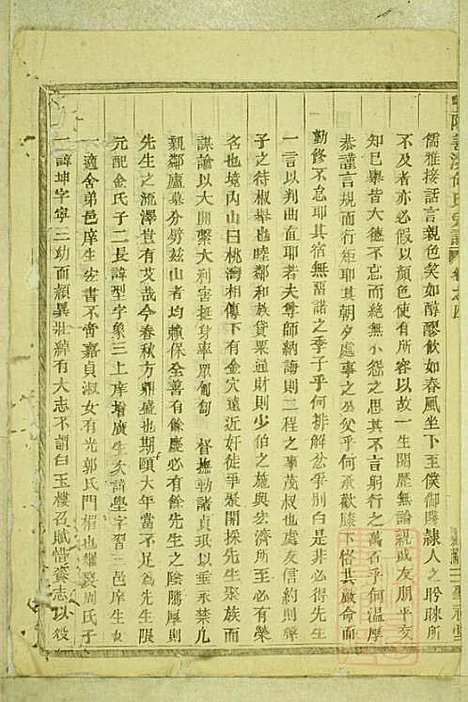 儒雅接話言親色笑如醇醪飲如春風坐下至僕御廝隸人之聆睞所
不及者亦必假以顏色使有所容以故一生閱歷無論親戚友朋平交
已與皆大德不忘而絶無小怨之思其言躬行之萬石乎何溫厚
恭謹言行矩耶其朝夕處事之
勤修不怠耶其宿無留諾之季子乎何排解忿爭別白是非俱得先生
一言以判曲直耶若夫尊師納誨則二程之事茂叔也友信約則
子之待椒舉也睦鄰和族貸粟通財則少伯之施與宏濟所以必有榮
名也境內山曰桃灣相傳下有金穴遠近奸徒爭聚開採先生聚族人
謀論以大開繫大利害挺身率眾匍匐 督撫勒諸貞珉以垂永禁凡
親鄰廬墓分劈茲山者均賴保全善有餘慶必有餘先生之陰隲厚則
先生之流澤豈有艾哉今春秋方鼎盛也期頤大年當不足為先生限
元配金氏子二長諱型字象三上庠增廣生次諱學字習三邑庠生女
一適舍弟邑庠生宏書不啻嘉貞淑女有光郭氏門楣也繼裴周氏子
一諱坤字寧三幼而穎異壯締有大志不謂白玉樓召賦惜齎志以歿